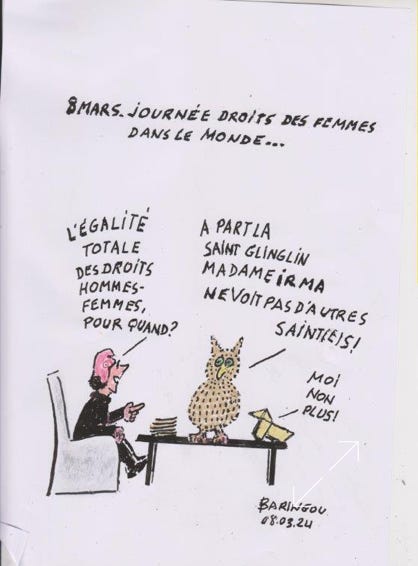 8 MARS. JOURNÉE DROITS DES FEMMES
DANS LE MONDE...
L'ÉGALITÉ
TOTALE
DES DROITS
HOMMES-
FEMMES,
POUR QUAND?
A PART LA
SAINT GLINGLIN
MADAME IRMA
NE VOIT PAS D'AUTRES
SAINT(E)S!
MOI
NON
PLUS!
BARINGOU
08.03.24